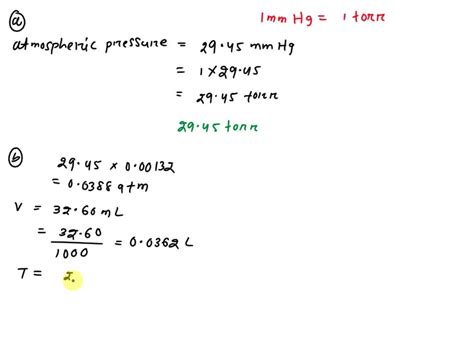 (a) 1 mm Hg = 1 torr
atmospheric pressure = 29.45 mm Hg
= 1 × 29.45
= 29.45 torr
29.45 torr
(b)
29.45 × 0.00132
= 0.0388 atm
V = 32.60 mL
= 32.60 / 1000 = 0.0362 L
T = 2.